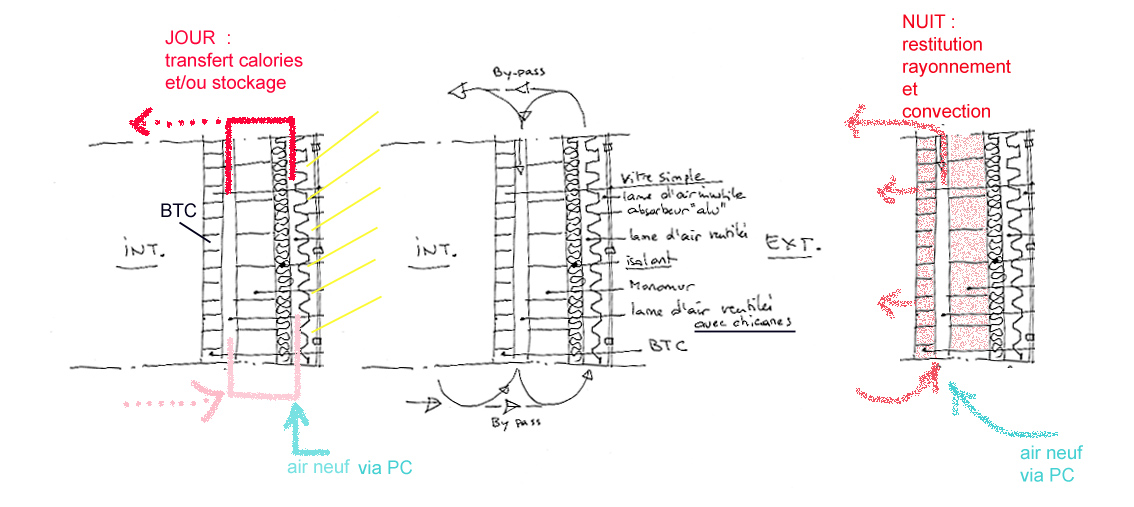 JOUR :
transfert calories
et/ou stockage
BTC
INT.
air neuf via PC
By-pass
INT.
vitre simple
lame d'air immobile
absorbeur "alu"
lame d'air ventilée
isolant
EXT.
Monomur
lame d'air ventilée
avec chicanes
BTC
By pass
NUIT :
restitution
rayonnement
et
convection
air neuf
via PC